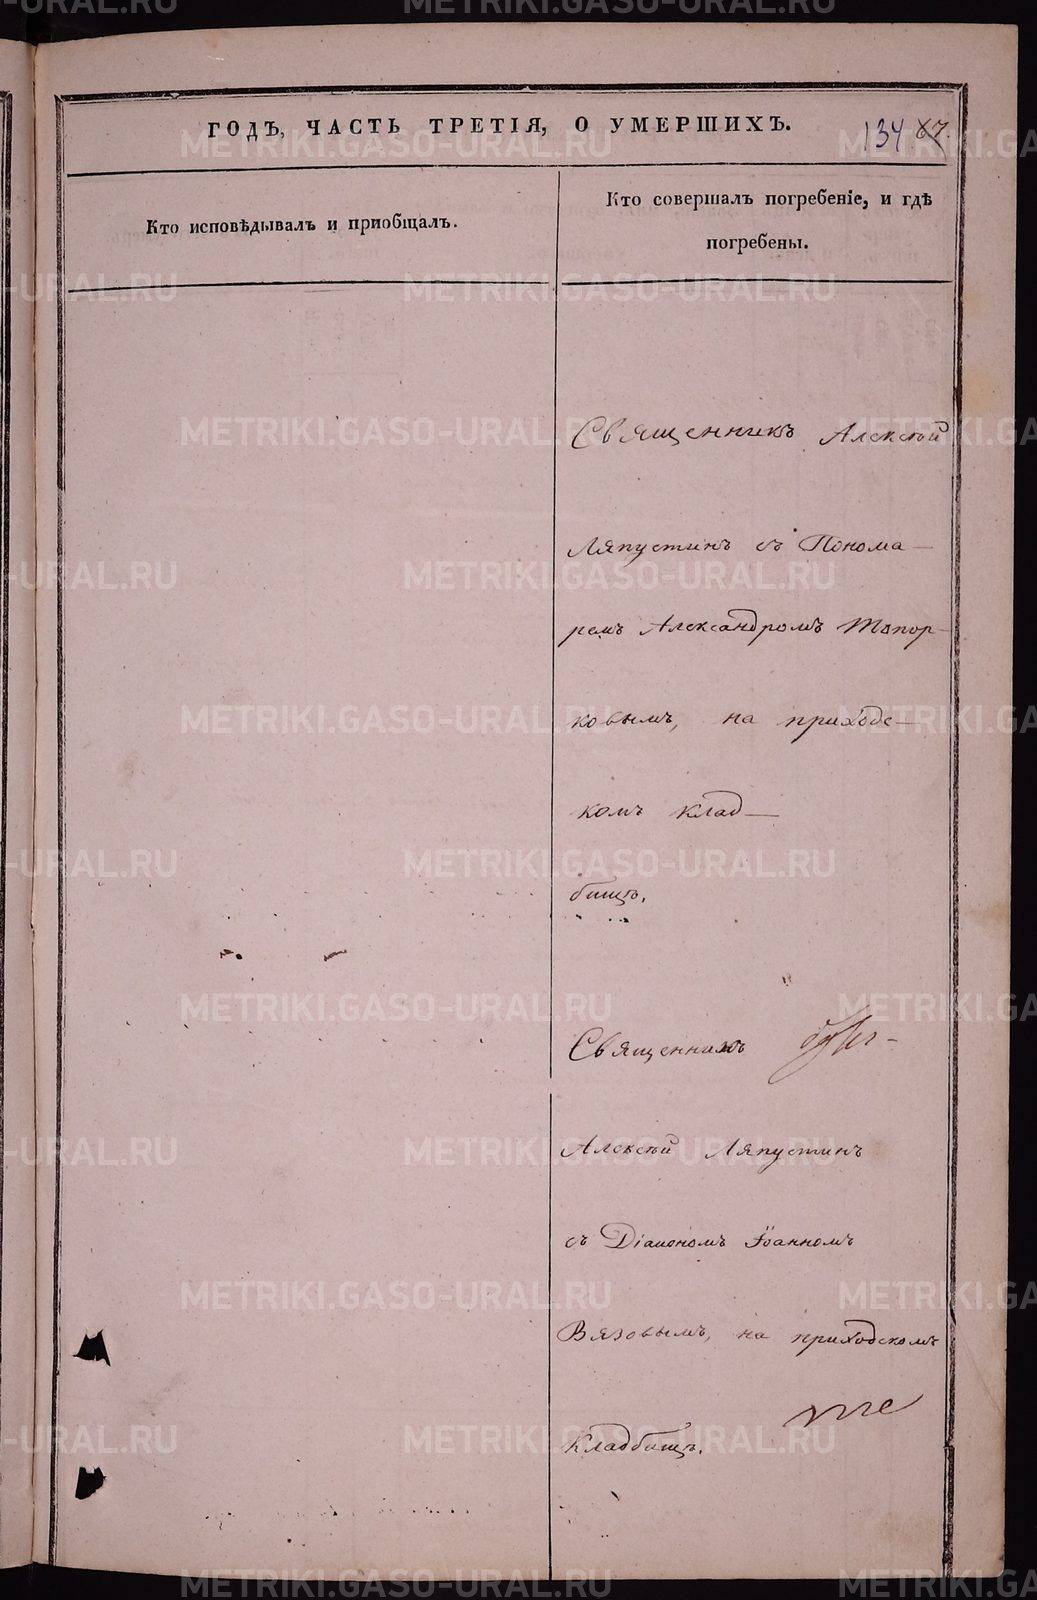 ГОДЪ, ЧАСТЬ ТРЕТІЯ, О УМЕРШИХЪ.
134 67.
Кто исповѣдывалъ и приобщалъ.
Кто совершалъ погребеніе, и гдѣ
погребены.
Священникъ Алексѣй
Ляпустинъ съ Понома—
ремъ Александромъ Топор—
ковымъ, на приходс—
комъ клад—
бищѣ.
Священникъ
Алексѣй Ляпустинъ
съ Діакономъ Іоанномъ
Вязовымъ, на приходскомъ
кладбищѣ.
METRIKI.GASO-URAL.RU